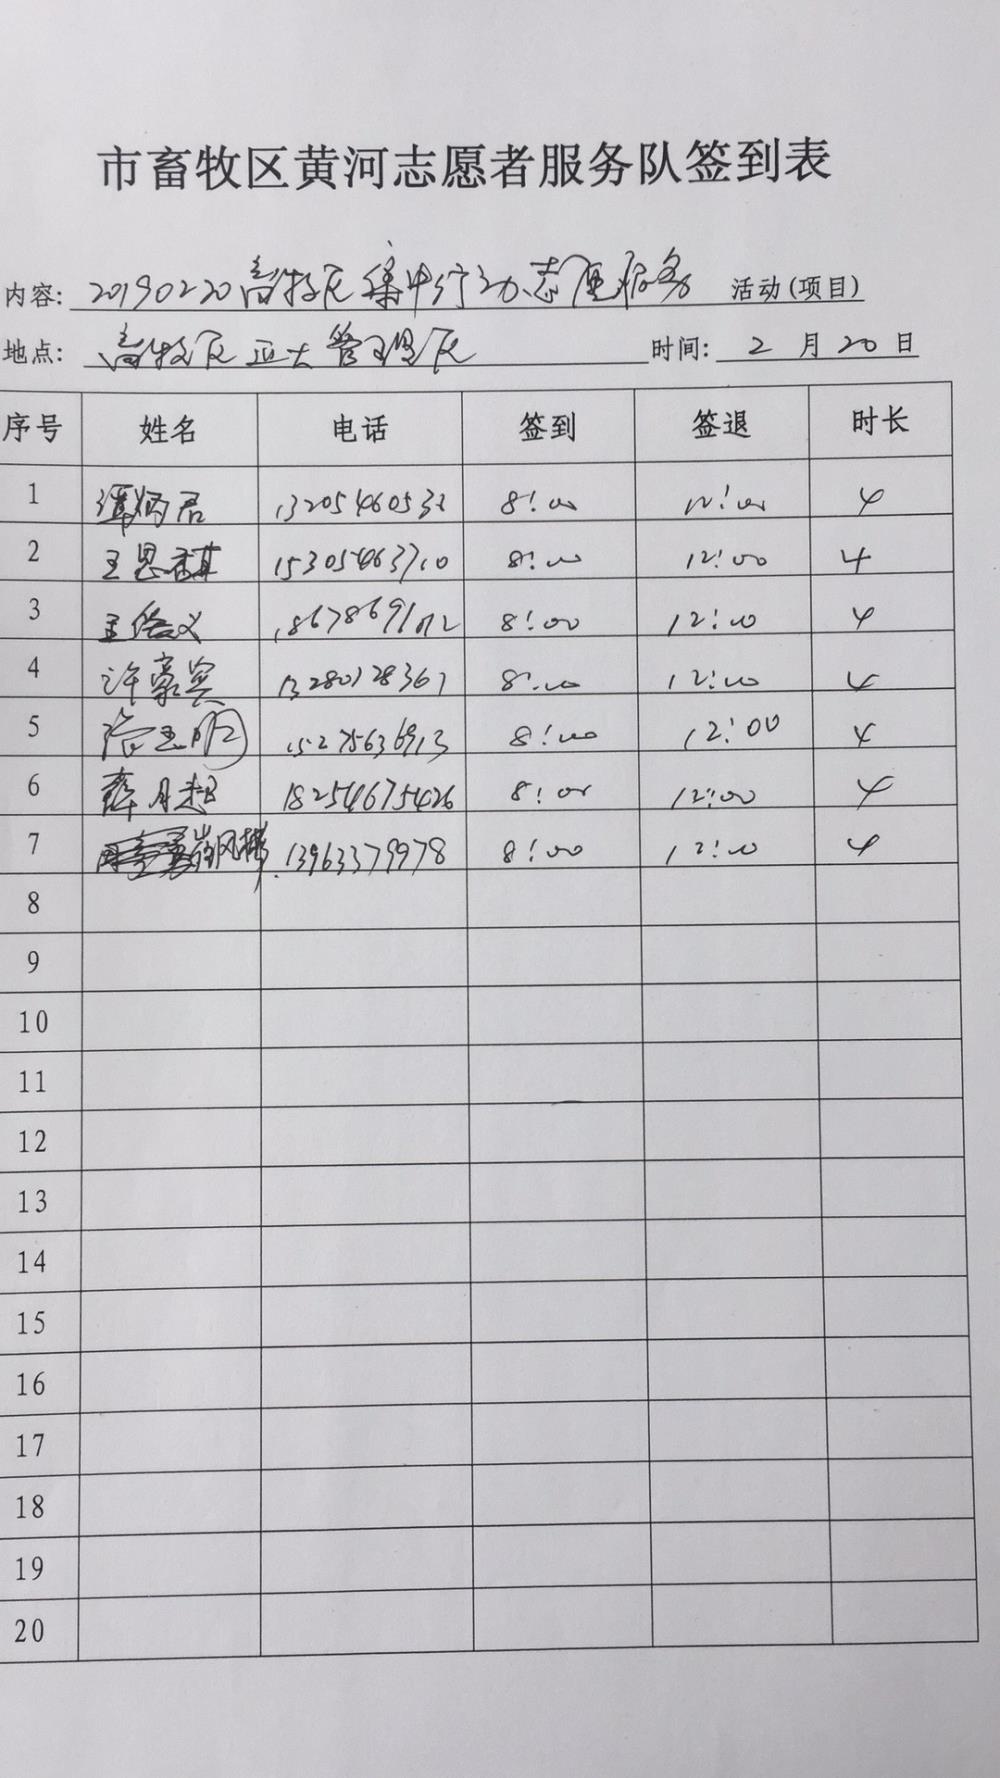 市畜牧区黄河志愿者服务队签到表
内容: 20190220畜牧区集中行动志愿服务 活动(项目)
地点: 畜牧区亚大管理区 时间: 2月20日
序号 姓名 电话 签到 签退 时长
1 谭炳君 8:00 12:00 4
2 15305463710 8:00 12:00 4
3 8:00 12:00 4
4 许豪宾 13280128361 8:00 12:00 4
5 15275636913 8:00 12:00 4
6 薛月超 18254675426 8:00 12:00 4
7 崔风梯 13963379978 8:00 12:00 4
8
9
10
11
12
13
14
15
16
17
18
19
20